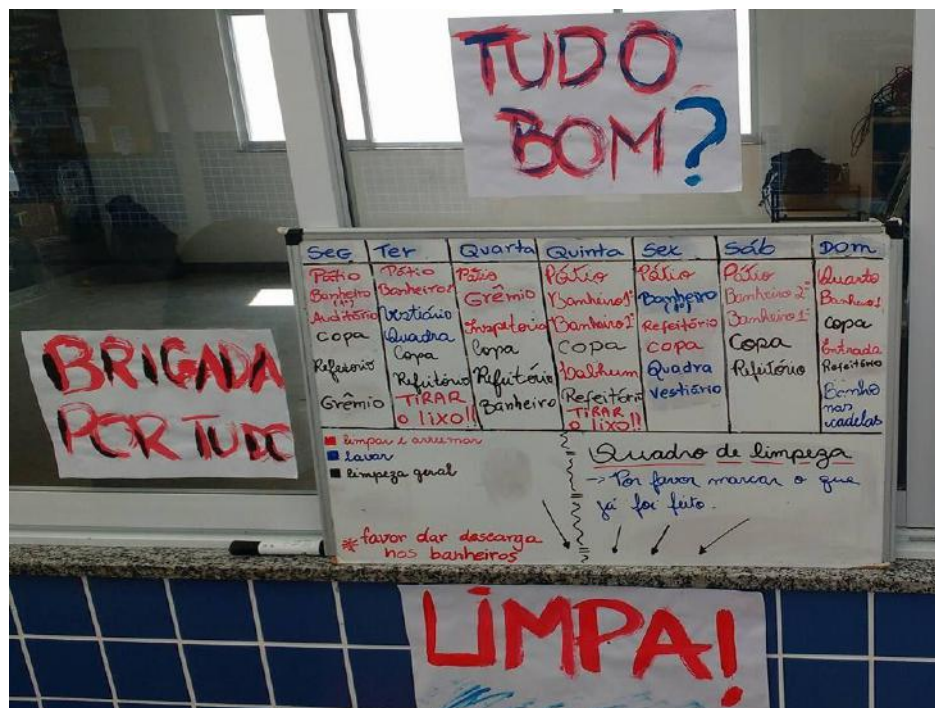 TUDO
BOM?
BRIGADA
POR TUDO
Seg Ter Quarta Quinta Sex Sáb Dom
Pátio Pátio Pátio Pátio Pátio Pátio Quarto
Banheiro (1º) Banheiro 1º Grêmio Banheiro 1º Banheiro (1º) Banheiro 2º Banheiro 1
Auditório Vestiário Inspetoria Banheiro 2º Refeitório Banheiro 1º Copa
Copa Quadra Copa Copa Copa Copa Entrada
Refeitório Copa Refeitório Quadra Refeitório Refeitório
Grêmio Refeitório Banheiro Refeitório Vestiário Banho nas cadelas
TIRAR o lixo!! TIRAR o lixo!!
limpar e arrumar
lavar
limpeza geral
*favor dar descarga
nos banheiros
Quadro de limpeza
-> Por favor marcar o que
já foi feito.
LIMPA!